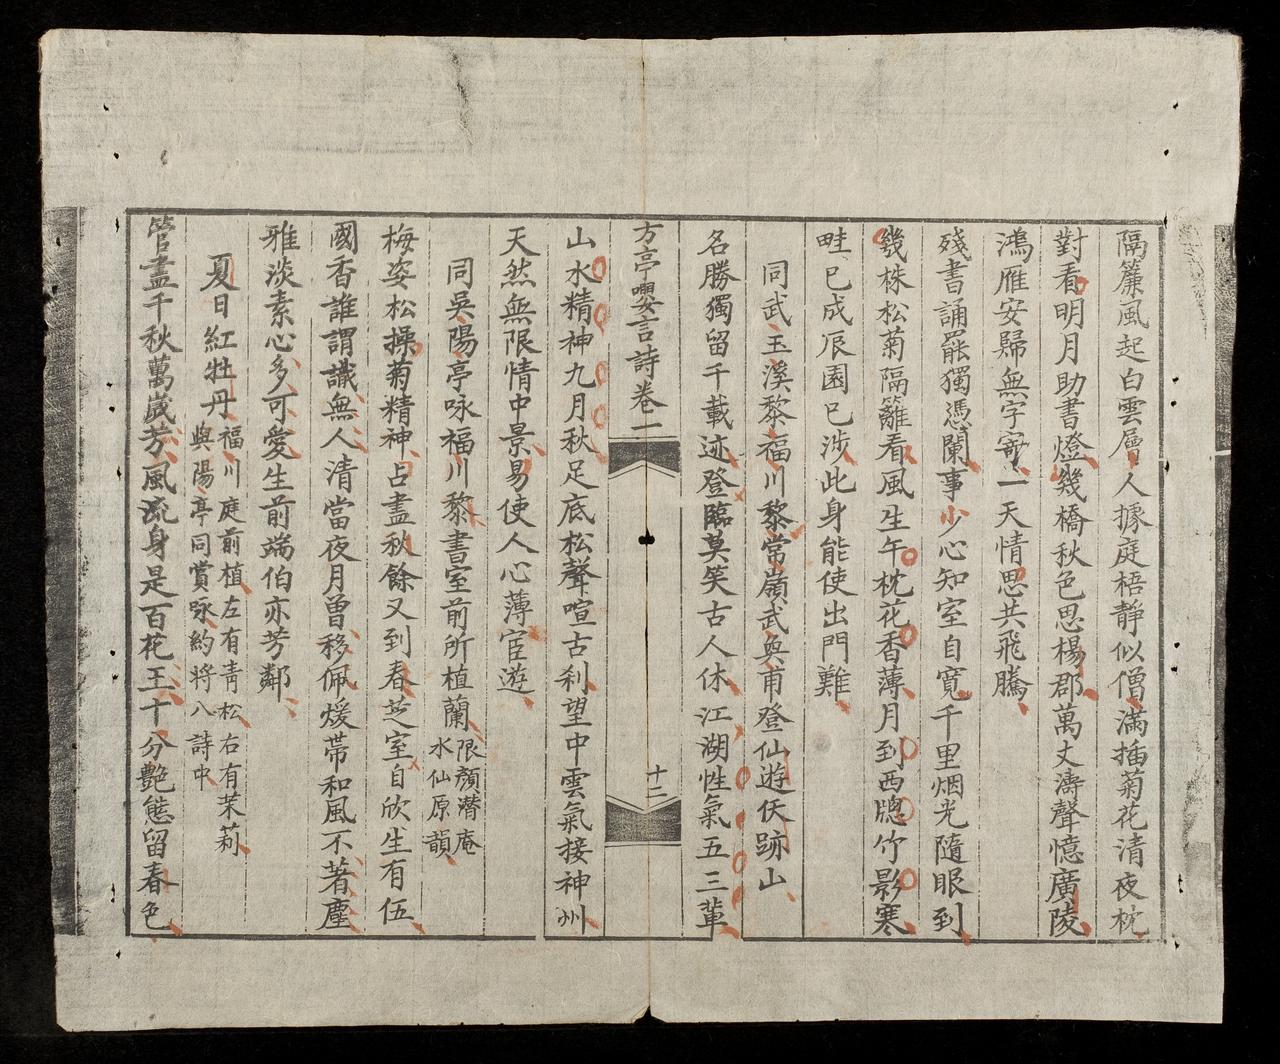 隔簾風起白雲層人據庭梧靜似僧滿插菊花清夜枕
對看明月助書燈幾橋秋色思楊郡萬丈濤聲憶廣陵
鴻雁安歸無字寄一天情思共飛騰
殘書誦罷獨憑闌事少心知室自寬千里烟光隨眼到
幾株松菊隔籬看風生午枕花香薄月到西牕竹影寒
畦已成辰園已涉此身能使出門難
同武玉溪黎福川黎常嶺武奐甫登仙遊佚跡山
名勝獨留千載迹登臨莫笑古人休江湖性氣五三輩
方亭嚶言詩卷一
十二
山水精神九月秋足底松聲喧古刹望中雲氣接神州
天然無限情中景易使人心薄宦遊
同吳陽亭咏福川黎書室前所植蘭
限顏潜庵
水仙原韻
梅姿松操菊精神占盡秋餘又到春芝室自欣生有伍
國香誰謂識無人清當夜月曾移佩煖帶和風不著塵
雅淡素心多可愛生前端伯亦芳鄰
夏日紅牡丹
福川庭前植左有靑松右有茉莉
與陽亭同賞咏約将八詩中
管盡千秋萬歲芳風流身是百花王十分艶態留春色